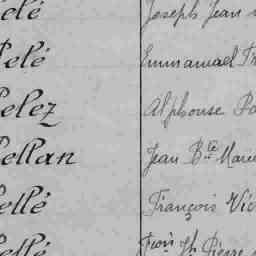 elé Joseph Jean
Pelé Emmanuel
elez Alphonse
ellan Jean Bte Marie
ellé François Vic
ellé Fçois Jh Pierre